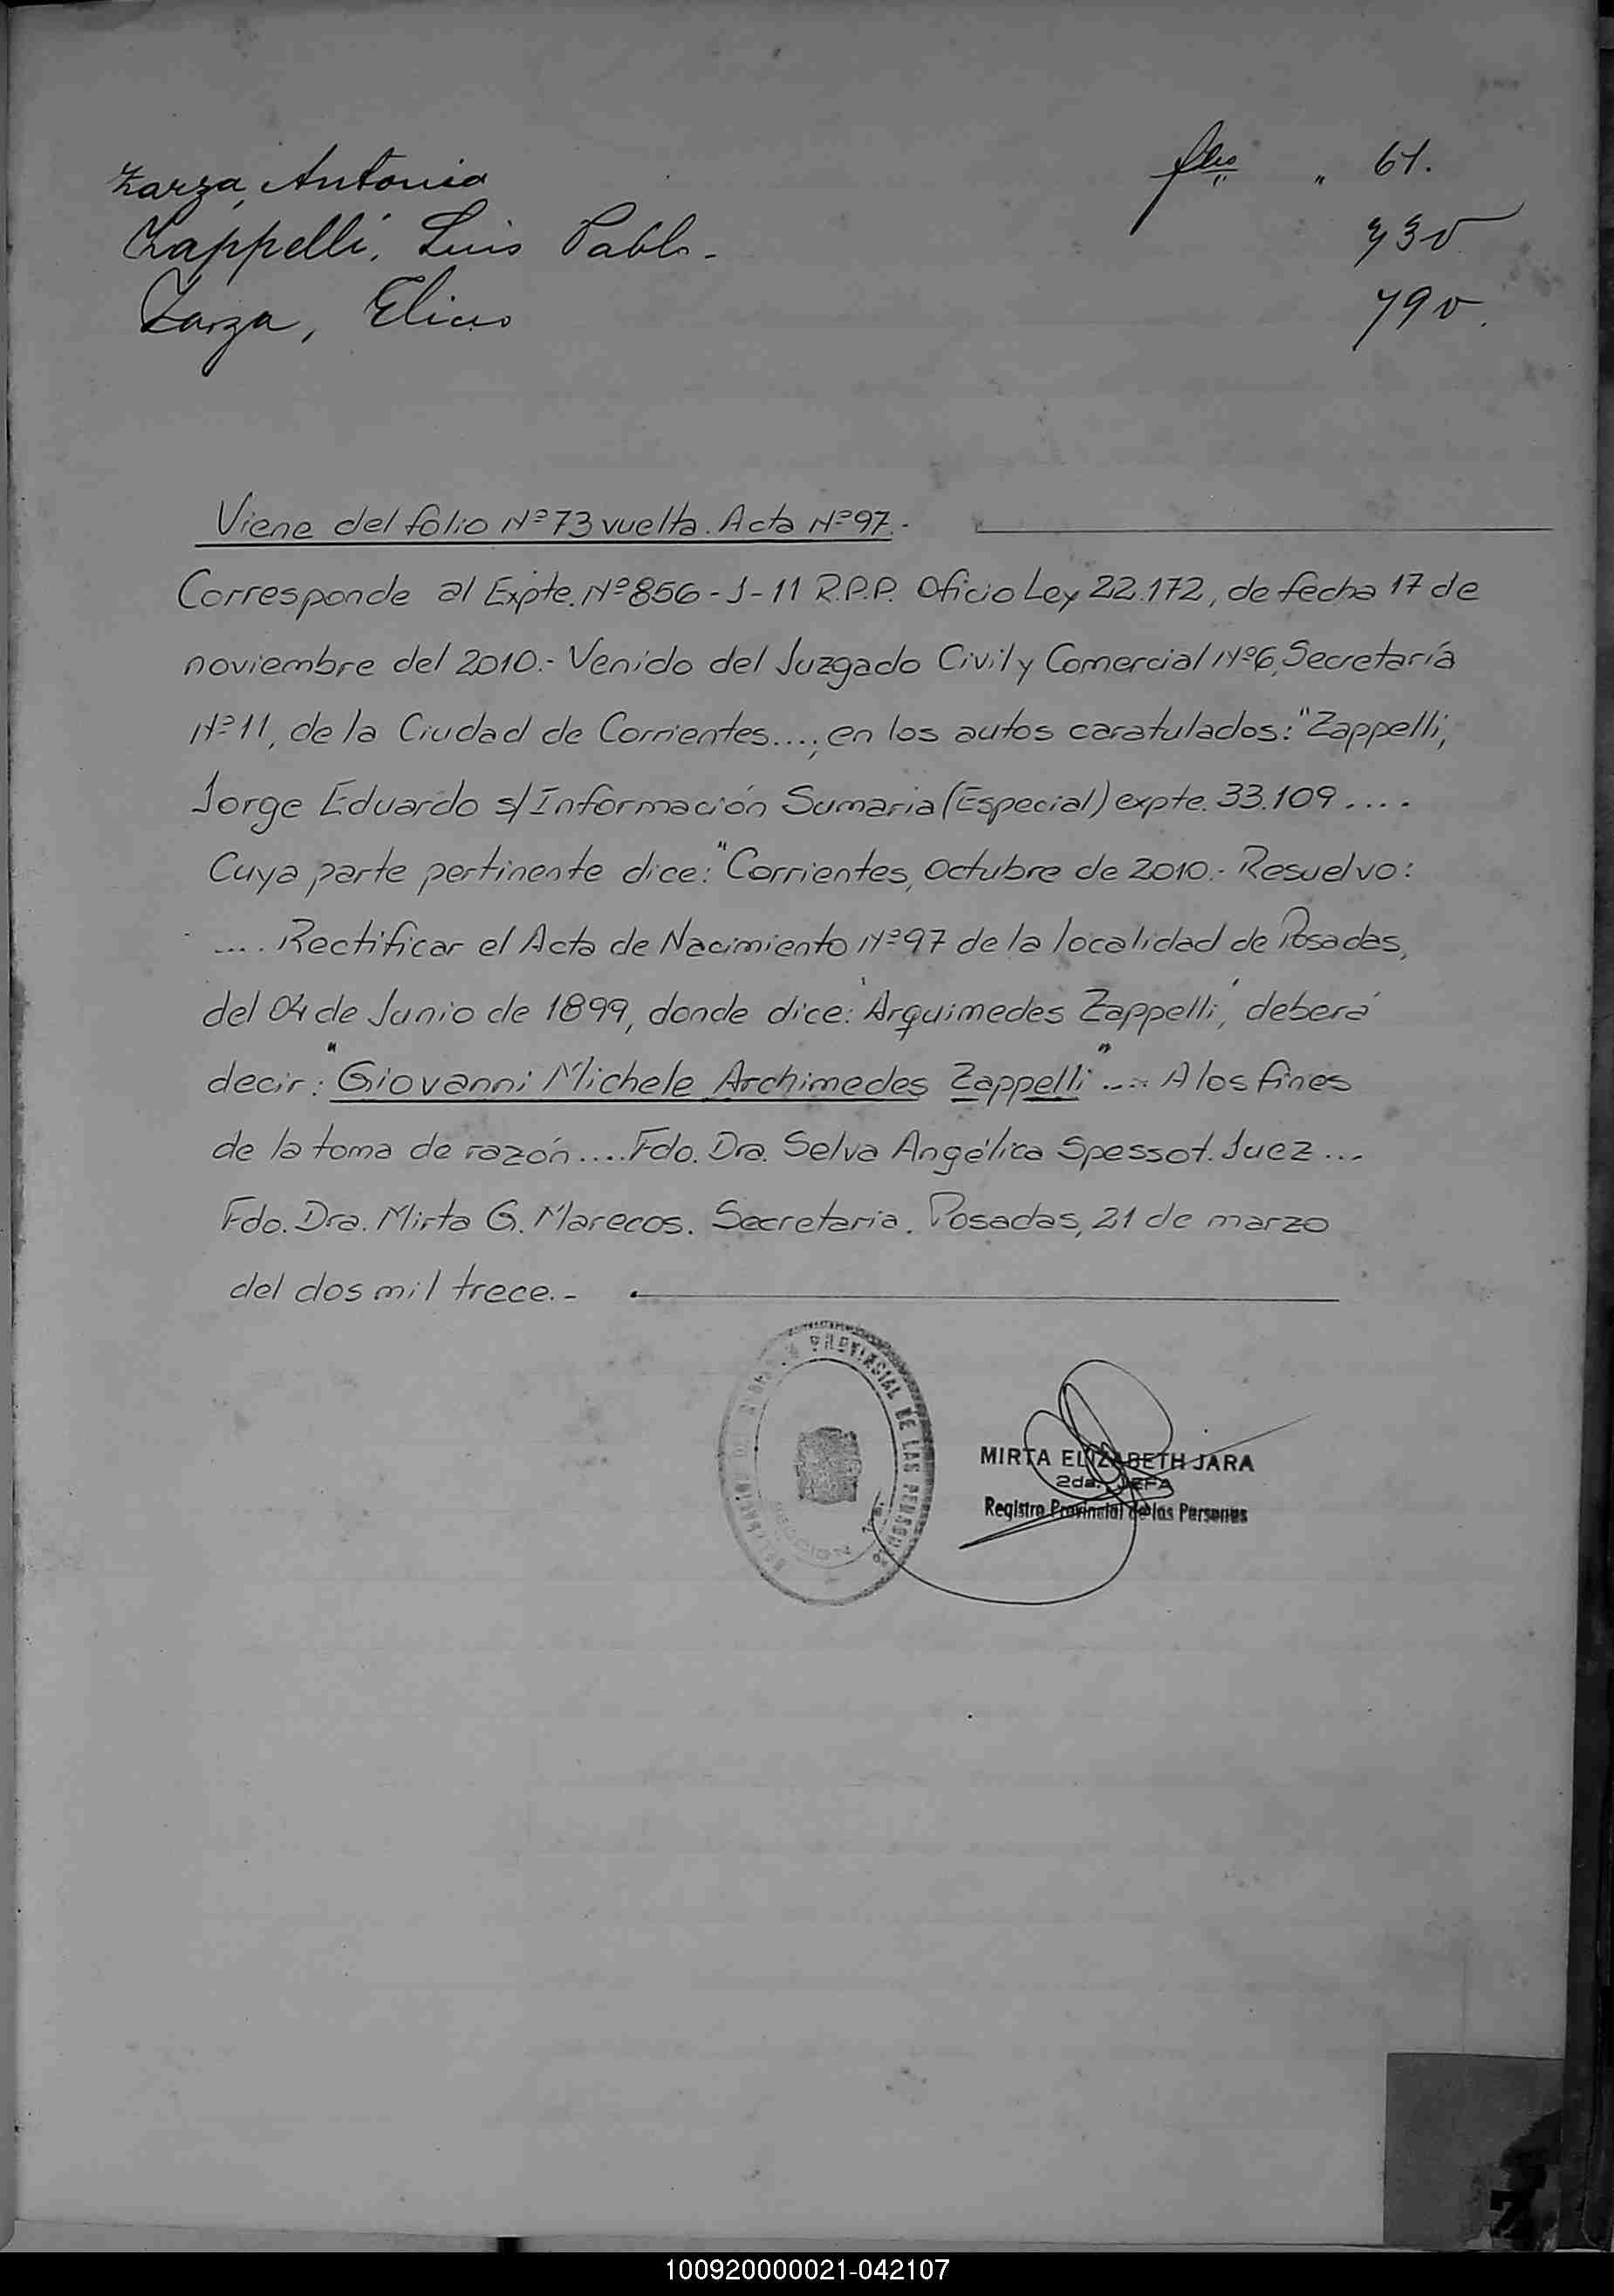 Zarza, Antonia flio " 61.
Zappelli, Luis Pablo- 73v
Zarza, 79v.
Viene del folio Nº73 vuelta. Acta Nº97.-
Corresponde al Expte. Nº856-J-11 R.P.P. Oficio Ley 22.172, de fecha 17 de
noviembre del 2010.- Venido del Juzgado Civil y Comercial Nº6, Secretaría
Nº11, de la Ciudad de Corrientes...., en los autos caratulados: "Zappelli,
Jorge Eduardo s/Información Sumaria (Especial) expte. 33.109....
Cuya parte pertinente dice: "Corrientes, Octubre de 2010.- Resuelvo:
.... Rectificar el Acta de Nacimiento Nº97 de la localidad de Posadas,
del 04 de Junio de 1899, donde dice: 'Arquimedes Zappelli', deberá
decir: "Giovanni Michele Archimedes Zappelli".... A los fines
de la toma de razón.... Fdo. Dra. Selva Angélica Spessot. Juez...
Fdo. Dra. Mirta G. Marecos. Secretaria. Posadas, 21 de marzo
del dos mil trece.-
PROVINCIAL DE LAS PERSONAS
MIRTA ELIZABETH JARA
2da. JEFA
Registro Provincial de las Personas
Z
100920000021-042107